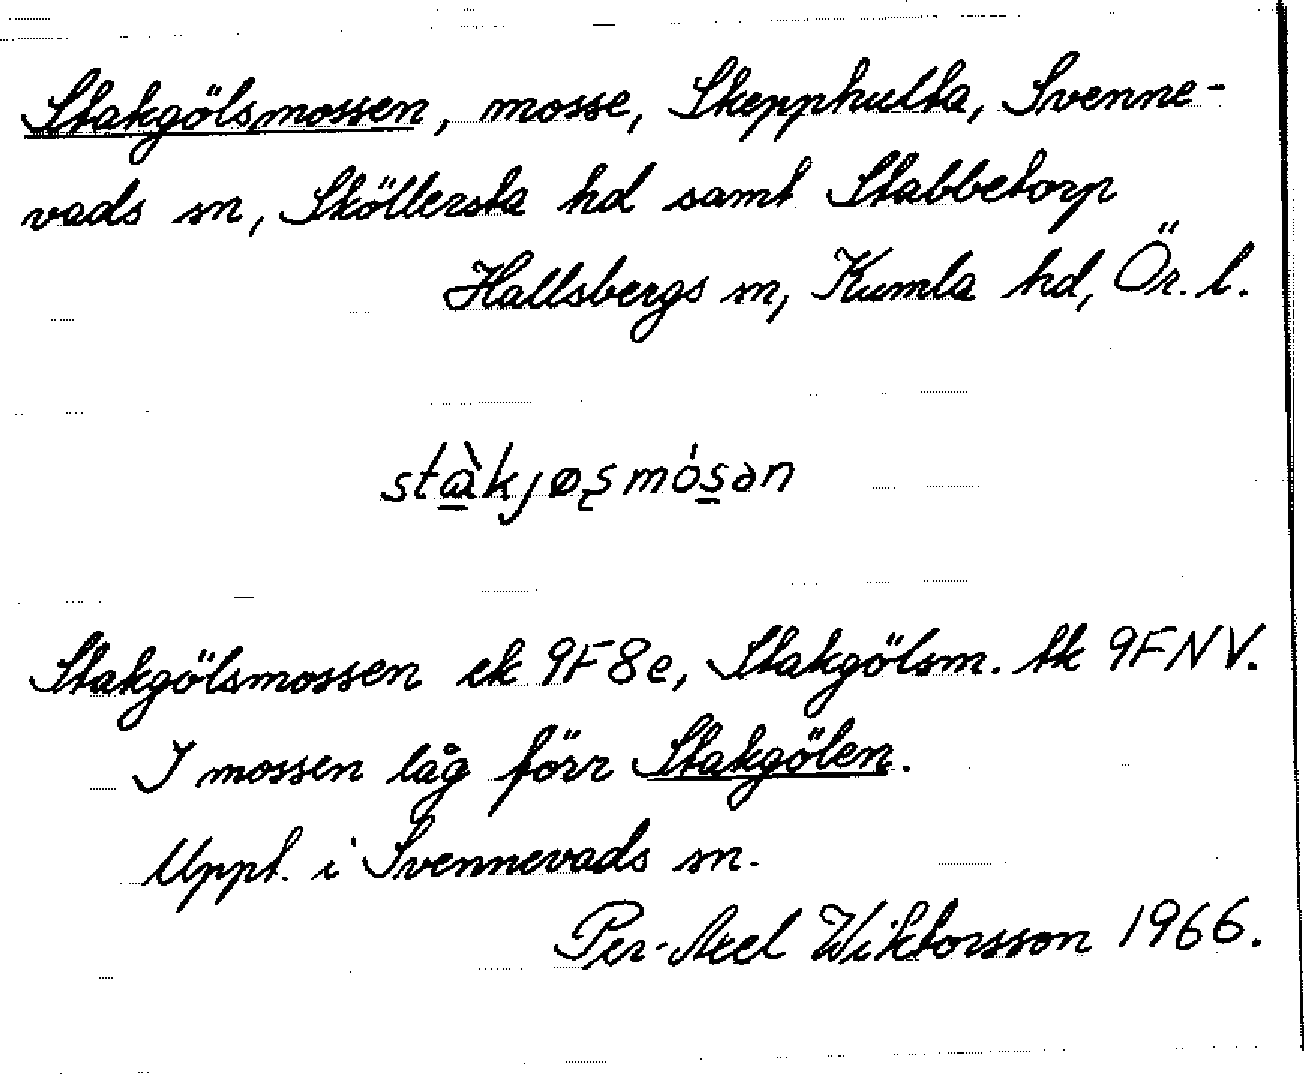 Stakgölsmossen, mosse, Skepphulta, Svenne-
vads sn, Sköllersta hd samt Stabbetorp
Hallsbergs sn, Kumla hd, Ör. l.
stàkjøʂmósən
Stakgölsmossen ek 9F8e, Stakgölsm. tk 9FNV.
I mossen låg förr Stakgölen.
Uppt. i Svennevads sn.
Per-Axel Wiktorsson 1966.